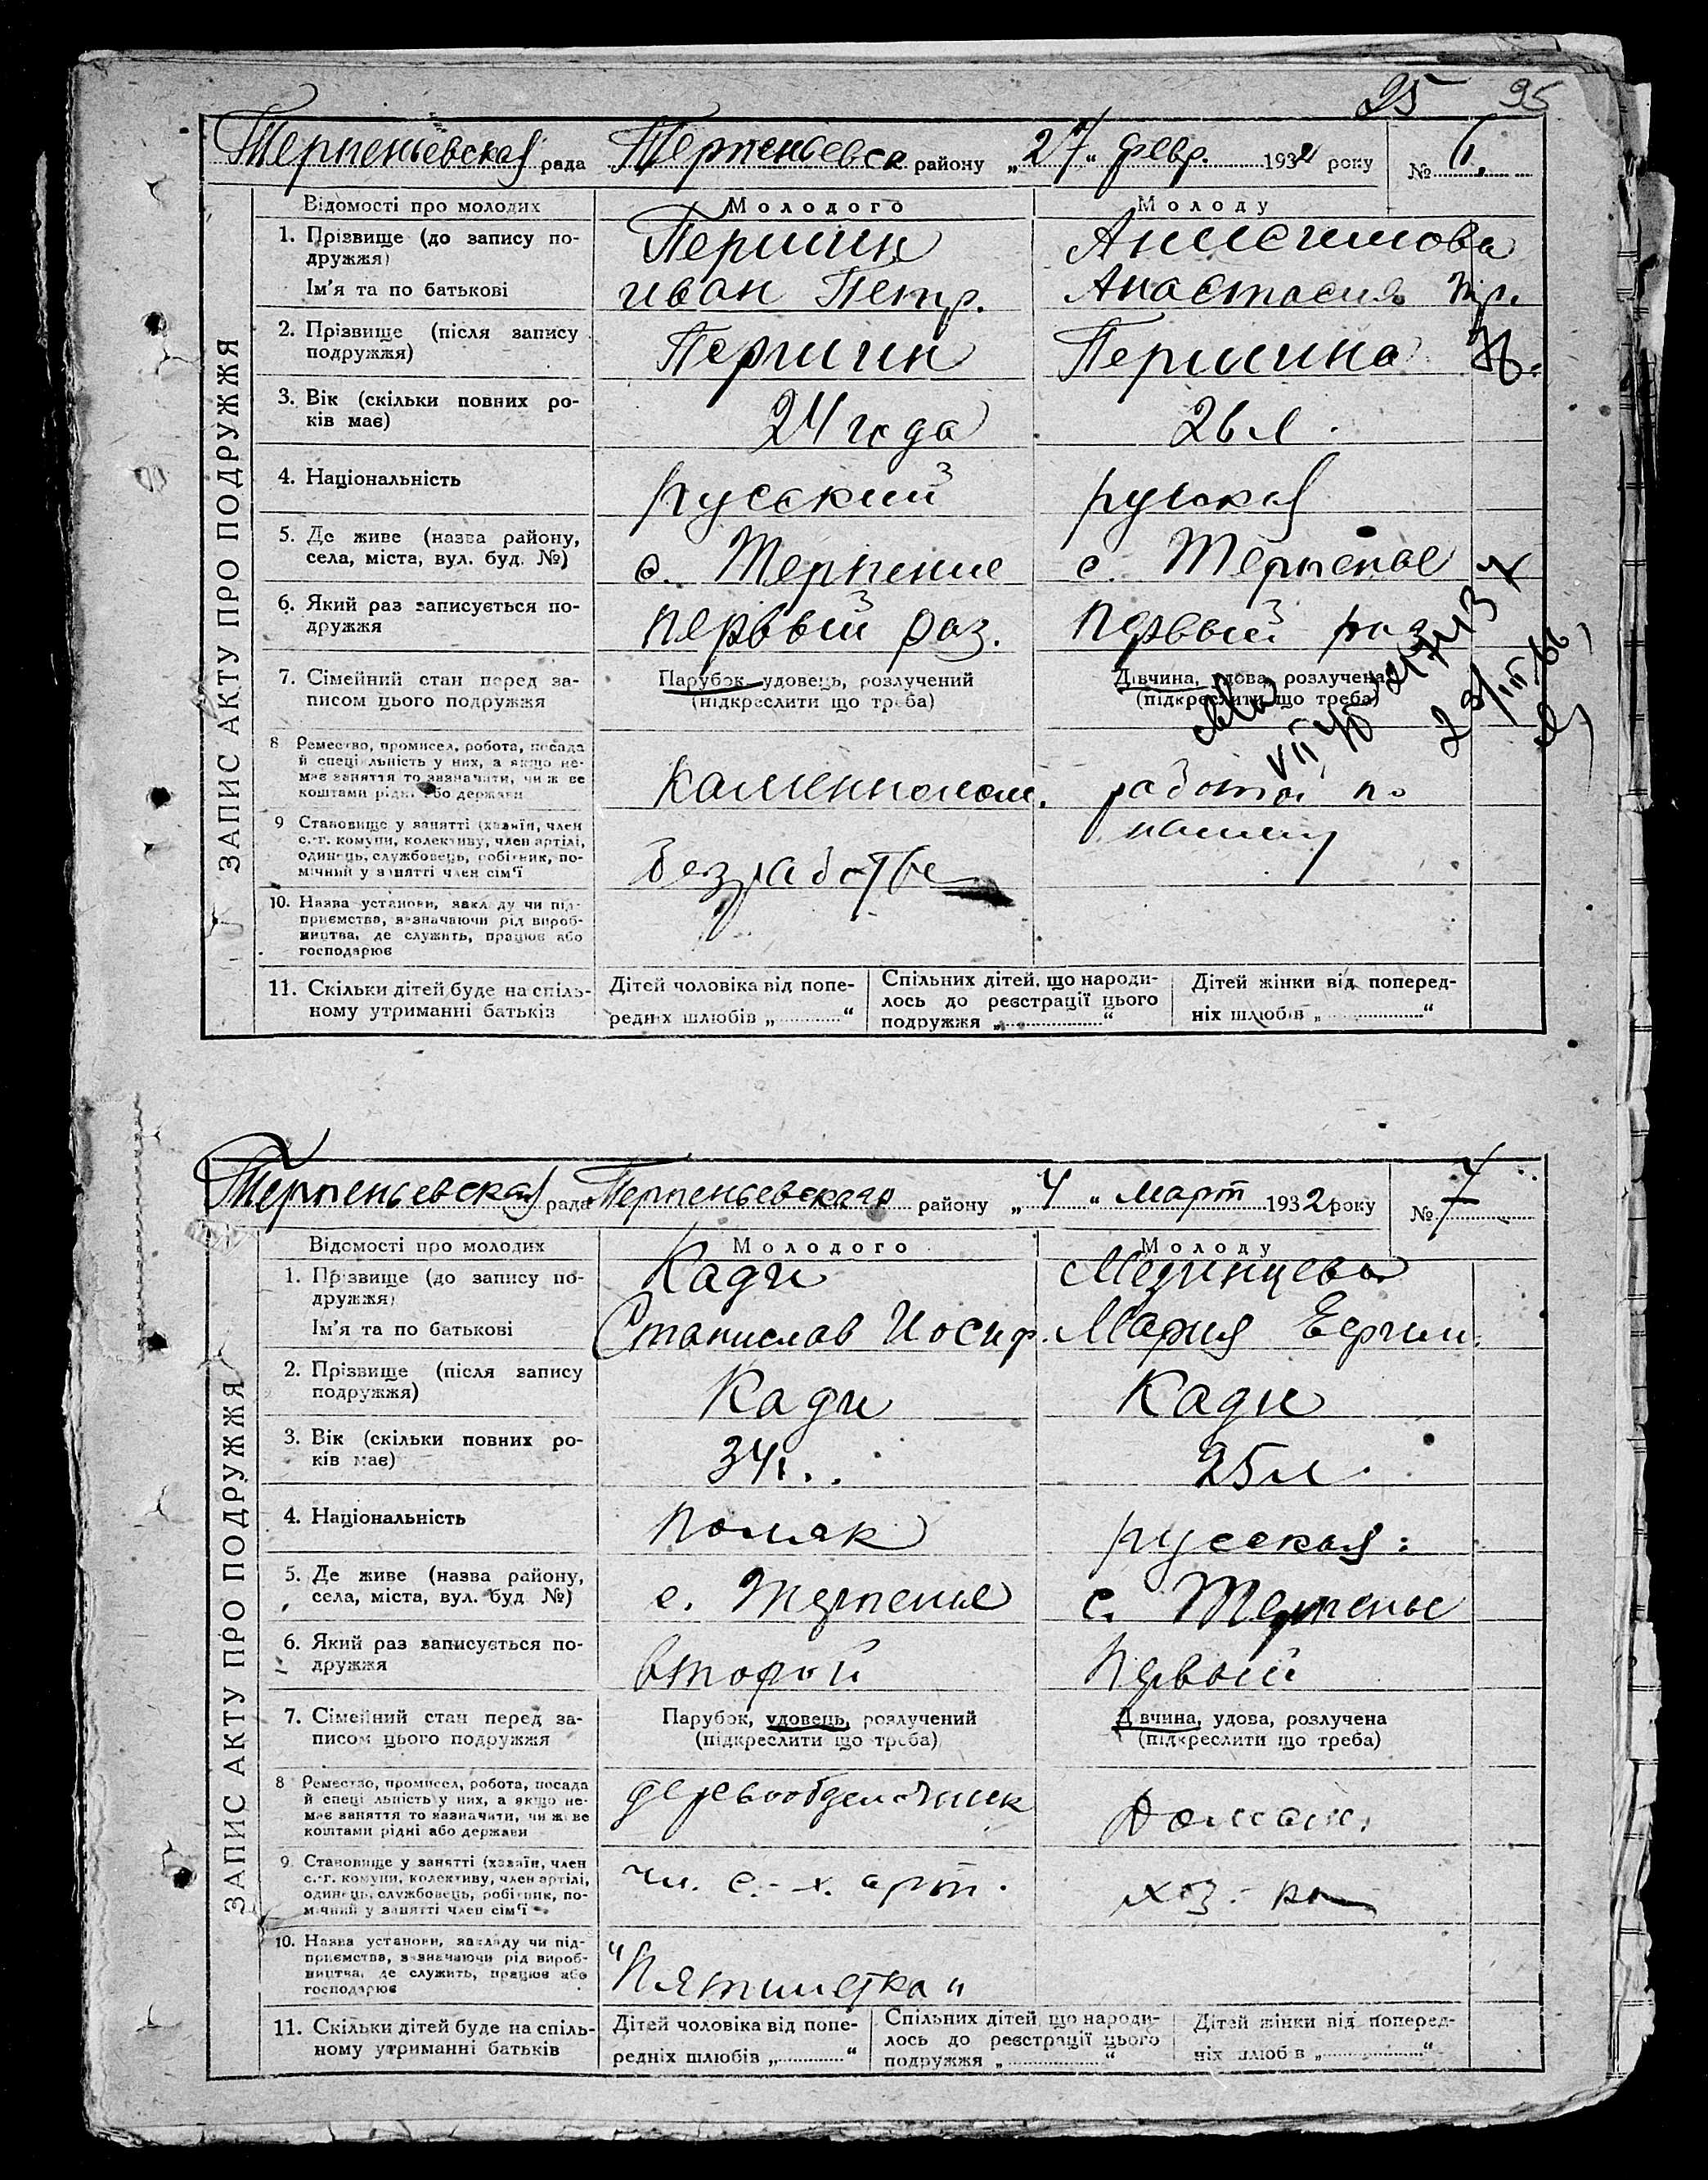 25 95
Терпеньевская рада Терпеньевск району „27“ февр. 1932 року № 6.
ЗАПИС АКТУ ПРО ПОДРУЖЖЯ
Відомості про молодих Молодого Молоду
1. Прізвище (до запису по-
дружжя) Першин Анисимова
Ім'я та по батькові Иван Петр. Анастасия
2. Прізвище (після запису
подружжя) Першин Першина
3. Вік (скільки повних ро-
ків має) 24 года 26 л.
4. Національність русский русская
5. Де живе (назва району,
села, міста, вул. буд. №) с. Терпение с. Терпенье
6. Який раз записується по-
дружжя первый раз. первый раз
7. Сімейний стан перед за-
писом цього подружжя
Парубок, удовець, розлучений
(підкреслити що треба)
Дівчина, удова, розлучена
(підкреслити що треба)
8 Ремество, промисел, робота, посада
й спеціальність у них, а якщо не-
має заняття то зазначити, чи живе
коштами рідні або держави
каменнолом. работа по
9 Становище у занятті (хазяїн, член
с.-г. комуни, колективу, член артілі,
одинець, службовець, робітник, по-
мічний у занятті член сім'ї
безработве найму
10. Назва установи, закладу чи під-
приємства, зазначаючи рід вироб-
ництва, де служить, працює або
господарює
11. Скільки дітей буде на спіль-
ному утриманні батьків
Дітей чоловіка від попе-
редніх шлюбів „ “
Спільних дітей, що народи-
лось до реєстрації цього
подружжя „ “
Дітей жінки від поперед-
ніх шлюбів „ “
Терпеньевская рада Терпеньевского району „4“ март 1932 року № 7
ЗАПИС АКТУ ПРО ПОДРУЖЖЯ
Відомості про молодих Молодого Молоду
1. Прізвище (до запису по-
дружжя) Кади Мединцева
Ім'я та по батькові Станислав Иосиф. Мария
2. Прізвище (після запису
подружжя) Кади Кади
3. Вік (скільки повних ро-
ків має) 34 г. 25 л.
4. Національність поляк русская
5. Де живе (назва району,
села, міста, вул. буд №) с. Терпенье с. Терпенье
6. Який раз записується по-
дружжя второй первый
7. Сімейний стан перед за-
писом цього подружжя
Парубок, удовець, розлучений
(підкреслити що треба)
Дівчина, удова, розлучена
(підкреслити що треба)
8 Ремество, промисел, робота, посада
й спеціальність у них, а якщо не-
має заняття то зазначити, чи живе
коштами рідні або держави
деревообделочник домаш.
9. Становище у занятті (хазяїн, член
с.-г. комуни, колективу, член артілі,
одинець, службовець, робітник, по-
мічний у занятті член сім'ї
чл. с.-х. арт. хоз-ка
10. Назва установи, закладу чи під-
приємства, зазначаючи рід вироб-
ництва, де служить, працює або
господарює
"Пятилетка"
11. Скільки дітей буде на спіль-
ному утриманні батьків
Дітей чоловіка від попе-
редніх шлюбів „ “
Спільних дітей, що народи-
лось до реєстрації цього
подружжя „ “
Дітей жінки від поперед-
ніх шлюбів „ “